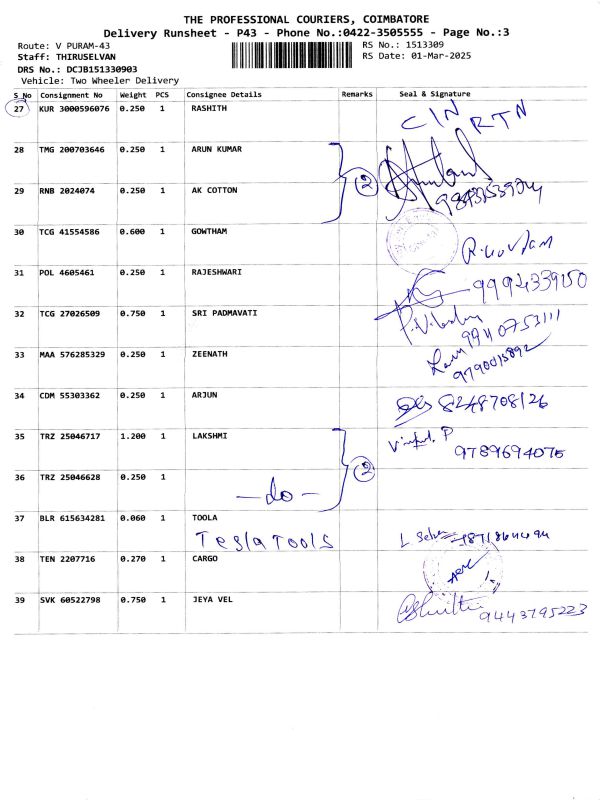 THE PROFESSIONAL COURIERS, COIMBATORE
Delivery Runsheet - P43 - Phone No.:0422-3505555 - Page No.:3
Route: V PURAM-43 RS No.: 1513309
Staff: THIRUSELVAN RS Date: 01-Mar-2025
DRS No.: DCJB151330903
Vehicle: Two Wheeler Delivery
S No Consignment No Weight PCS Consignee Details Remarks Seal & Signature
27 KUR 3000596076 0.250 1 RASHITH CIN RTN
28 TMG 200703646 0.250 1 ARUN KUMAR 2
29 RNB 2024074 0.250 1 AK COTTON
30 TCG 41554586 0.600 1 GOWTHAM
31 POL 4605461 0.250 1 RAJESHWARI 9994339150
32 TCG 27026509 0.750 1 SRI PADMAVATI 9940753111
33 MAA 576285329 0.250 1 ZEENATH
34 CDM 55303362 0.250 1 ARJUN 8248708126
35 TRZ 25046717 1.200 1 LAKSHMI 2 9789694075
36 TRZ 25046628 0.250 1 -do-
37 BLR 615634281 0.060 1 TOOLA
Tesla TOOLS
38 TEN 2207716 0.270 1 CARGO
39 SVK 60522798 0.750 1 JEYA VEL 9443795223